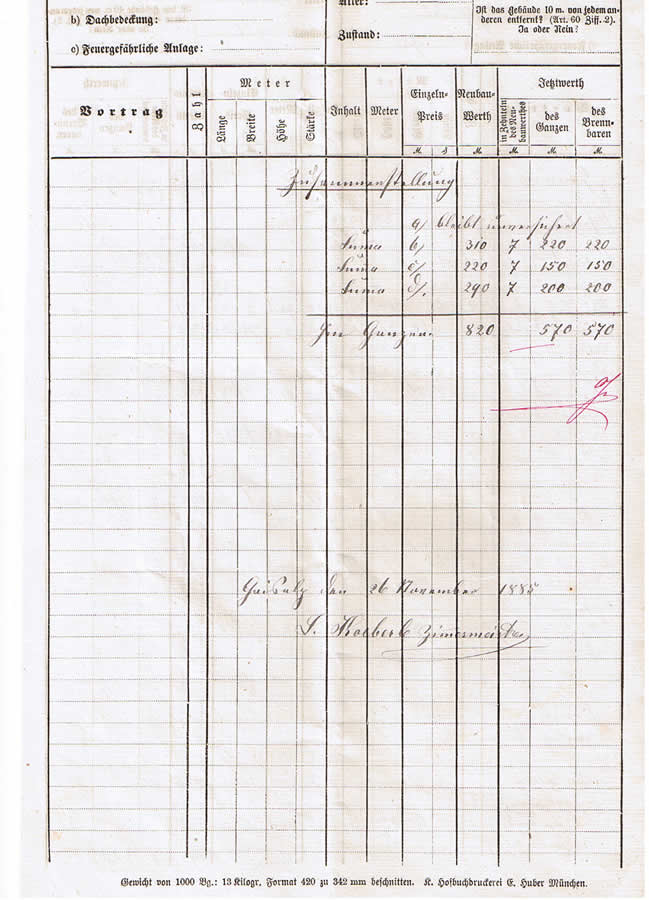 b) Dachbedeckung:
c) Feuergefährliche Anlage:
Alter:
Zustand:
Ist das Gebäude 10 m. von jedem an-
deren entfernt? (Art. 60 Ziff. 2).
Ja oder Nein?
Vortrag
Zahl
Meter
Länge
Breite
Höhe
Stärke
Inhalt
Meter
Einzeln-
Preis
Neubau-
Werth
Jetztwerth
in Zehnteln
des Neu-
bauwerthes
des
Ganzen
des
Brenn-
baren
M. ₰ M. M. M.
Zusammenstellung
a/ bleibt unversichert
Suma b/ 310 7 220 220
Suma c/ 220 7 150 150
Suma d/. 290 7 200 200
Im Ganzen 820 570 570
den 26 November 1885
Zimermeister
Gewicht von 1000 Bg.: 13 Kilogr., Format 420 zu 342 mm beschnitten. K. Hofbuchdruckerei E. Huber München.